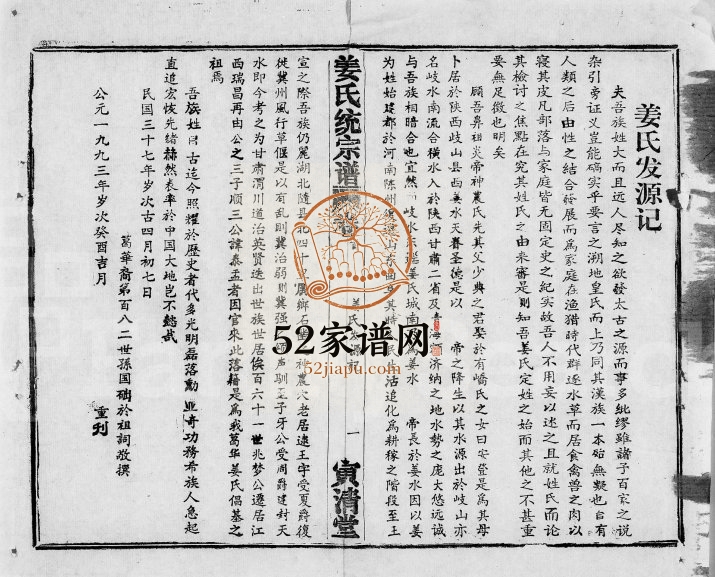 姜氏发源记
夫吾族姓大而且远人尽知之欲發太古之源而事多紕缪雖諸子百家之说
杂引旁证义豈能碻实乎要言之溯地皇氏而上乃同其漢族一本殆無疑也自有
人類之后由性之結合發展而為家庭在渔猎時代群逐水草而居食禽兽之肉以
寝其皮凡部落与家庭皆无固定史之紀实故吾人不用妄以述之且就姓氏而论
其检讨之焦點在究其姓氏之由来審是則知吾姜氏定姓之始而其他之不甚重
要無足徵也明矣
顾吾鼻祖炎帝神農氏先其父少典之君娶於有嶠氏之女曰安登是為其母
卜居於陕西岐山县西姜水天眷圣德是以 帝之降生以其水源出於岐山亦
名岐水南流合横水入於陕西甘肃二省及青海 济纳之地水勢之庞大悠远诚
与吾族相暗合也宜然 岐水东 姜氏城南 為姜水 帝長於姜水因以姜
为姓始建都於河南陈州 山东曲阜其時 民 活追化為耕稼之階段至王
姜氏统宗谱
姜氏发源記
一
寅清堂
宣之際吾族仍麗湖北随县北四十里厲鄉石 神農穴老居逮王宇受夏爵復
徙冀州風行草偃是以有乱則冀治弱則冀强 声馴王子牙公受周爵建封天
水即今考之为甘肃渭川道治英贤迭出世族世居俟百六十一世兆梦公遷居江
西瑞昌再由公之三子顺三公諱泰五者因官來此落籍是為我葛华姜氏倡基之
祖焉
吾族姓自古迄今照耀於歷史者代多光明磊落勳业奇功務希族人急起
直追宏恢先绪赫然表率於中国大地岂不懿哉
民国三十七年岁次古四月初七日
葛華裔第百八二世孫国础於祖祠敬撰
公元一九九三年岁次癸酉吉月
重刊
52家谱网
52jiapu.com